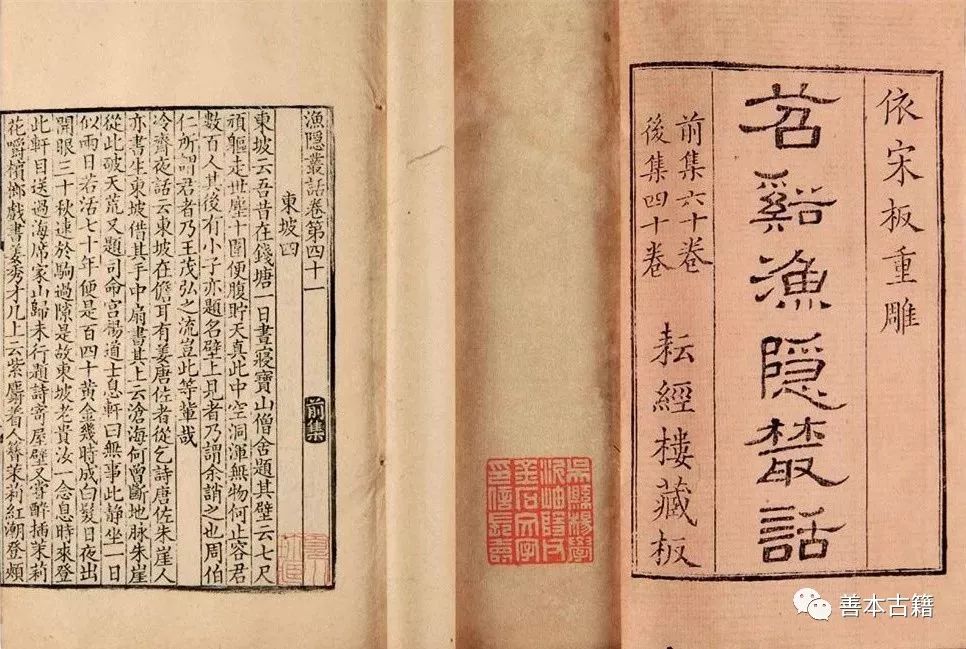 依宋板重雕
苕谿漁隱叢話
前集六十卷
後集四十卷
耘經樓藏板
漁隱叢話卷第四十一
前集
東坡四
東坡云吾昔在錢塘一日晝寢寶山僧舍題其壁云七尺
頑軀走世塵十圍便腹貯天真此中空洞渾無物何止容君
數百人其後有小子亦題名壁上見者乃謂余誚之也周伯
仁所謂君者乃王茂弘之流豈此等輩哉
冷齋夜話云東坡在儋耳有姜唐佐者從乞詩唐佐朱崖人
亦書生東坡借其手中扇書其上云滄海何曾斷地脉朱崖
從此破天荒又題司命宮楊道士息軒曰無事此静坐一日
似兩日若活七十年便是百四十黄金幾時成白髮日夜出
開眼三十秋速於駒過隙是故東坡老貴汝一念息時來登
此軒目送過海席家山歸未行題詩寄屋壁又嘗醉插茉莉
花嚼檳榔戲書姜秀才几上云紫麝着人簪茉莉紅潮登頰
善本古籍